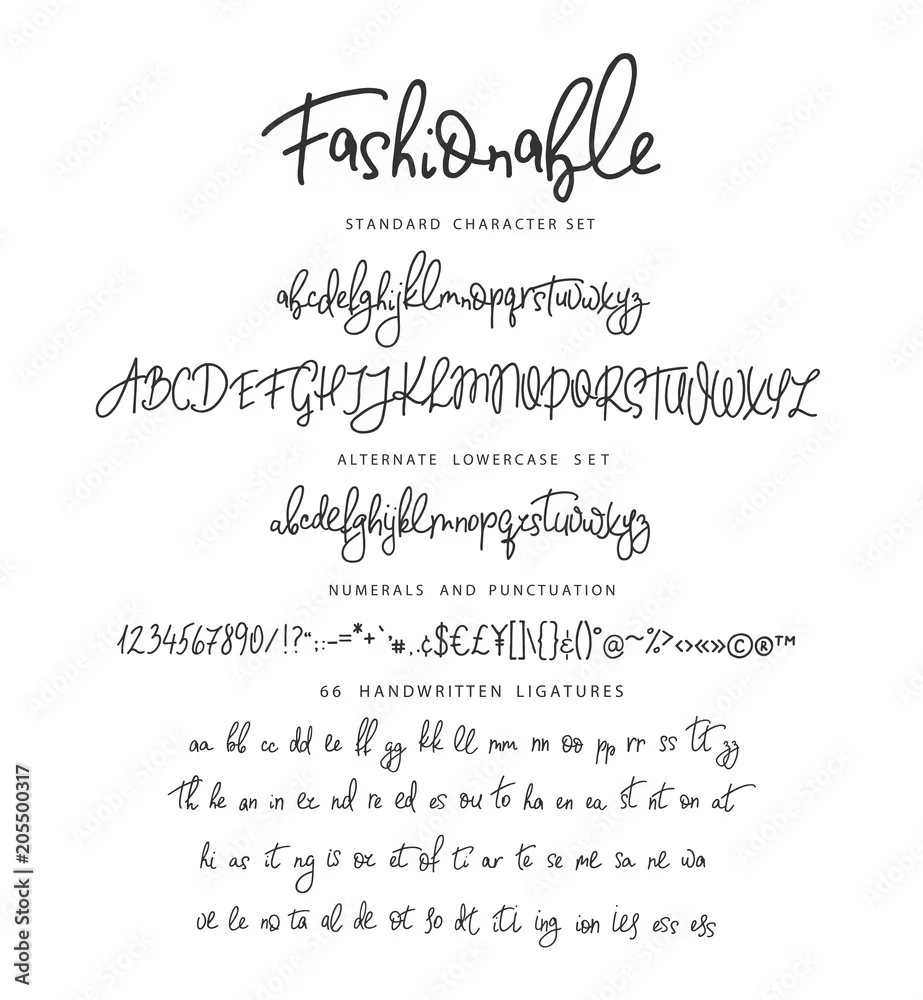 Fashionable
STANDARD CHARACTER SET
abcdefghijklmnopqrstuvwxyz
ABCDEFGHIJKLMNOPQRSTUVWXYZ
ALTERNATE LOWERCASE SET
abcdefghijklmnopqrstuvwxyz
NUMERALS AND PUNCTUATION
1234567890/!?“;:-=*+`’#,.¢$€£¥[]\{}&()°@~%><>«»©®™
66 HANDWRITTEN LIGATURES
aa bb cc dd ee ff gg kk ll mm nn oo pp rr ss tt zz
th he an in er nd re ed es ou to ha en ea st nt on at
hi as it ng is or et of ti ar te se me sa ne wa
ve le no ta al de ot so dt iti ing ion ies ess ess
Adobe Stock | #205500317